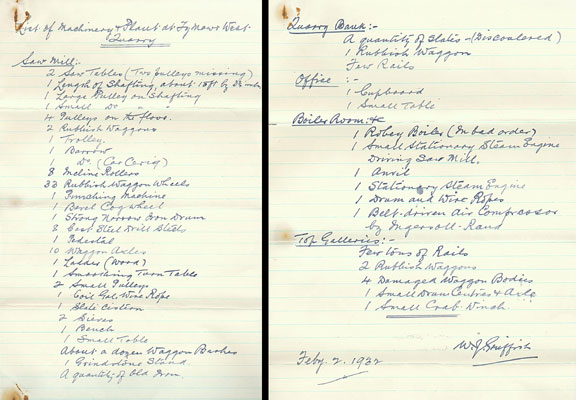 List of Machinery & Plant at Tynawr West
Quarry
Saw Mill:-
2 Saw Tables (Two Pulleys missing)
1 Length of Shafting, about 15ft by
1 Large Pulley on Shafting
1 Small Do "
4 Pulleys on the floor.
2 Rubbish Waggons
1 Trolley.
1 Barrow
1 Do. (Car Cerig)
8 Incline Rollers
33 Rubbish Waggon Wheels
1 Punching Machine
1 Bevel Cog wheel
1 Strong Narrow Iron Drum
8 Cast Steel Drill Steels
1 Pedestal
10 Waggon Axles
1 Ladder (Wood)
1 Turn Table
2 Small Pulleys
1 Coil Gal. Wire Rope
1 Slate Cistern
2 Sieves
1 Bench
1 Small Table
About a dozen Waggon Bushes
1 Grindstone Stand
A quantity of Old Iron.
Quarry Bank:-
A quantity of Slates - (Discoulered)
1 Rubbish Waggon
Few Rails
Office :-
1 Cupboard
1 Small Table
Boiler Room: &c
1 Robey Boiler (In bad order)
1 Small Stationary Steam Engine
Driving Saw Mill.
1 Anvil
1 Stationary Steam Engine
1 Drum and Wire Ropes
1 Belt-driven Air Compressor
by Ingersoll-Rand
Top Galleries:-
Few tons of Rails
2 Rubbish Waggons
4 Damaged Waggon Bodies
1 Small Drum Centres & Axle
1 Small Crab Winch.
W. J. Griffith
Feby. 2. 1932